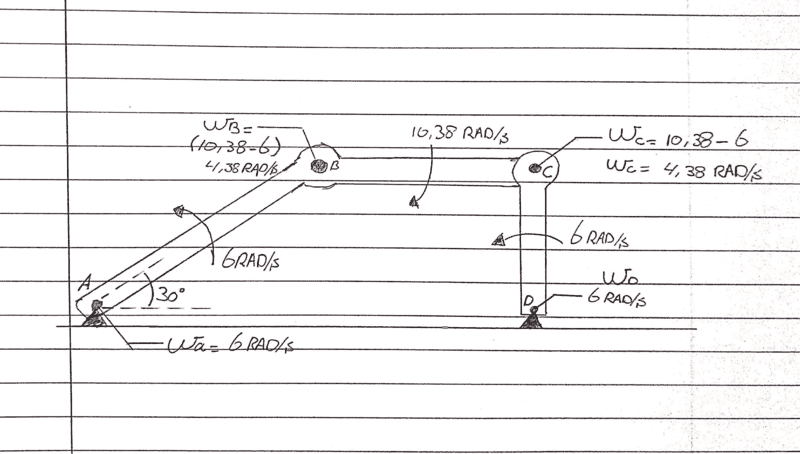 WB=
(10,38-6)
4,38 RAD/s
B
10,38 RAD/s
Wc= 10,38 - 6
Wc= 4,38 RAD/s
C
6 RAD/s
6 RAD/s
A
30°
D
WD
6 RAD/s
Wa= 6 RAD/s